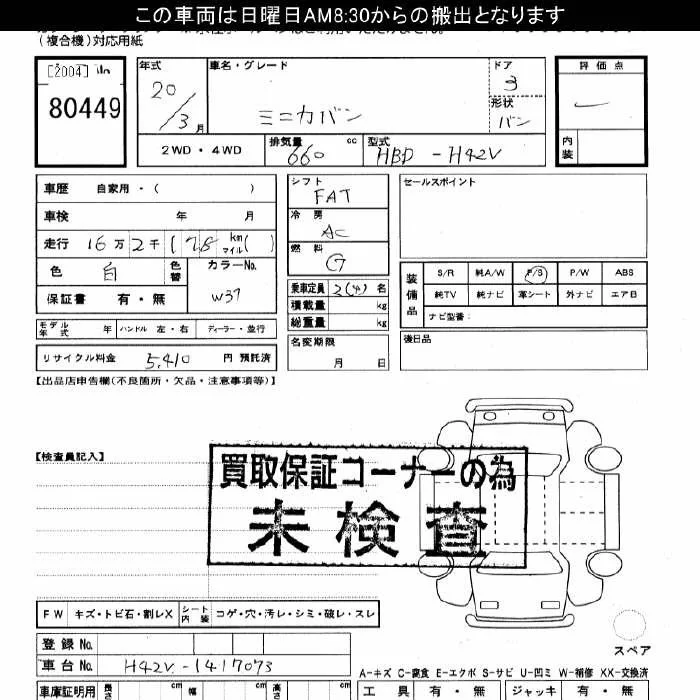 この車両は日曜日AM8:30からの搬出となります
(複合機)対応用紙
[2004]
80449
年式
20/3月
車名・グレード
ミニカバン
ドア
3
形状
バン
評価点
内装
2WD・4WD
排気量
660 cc
型式
HBD-H42V
車歴 自家用・( )
車検 年 月
走行 16万2千(78 km マイル( )
色 白 色替
カラーNo.
W37
保証書 有・無
シフト
FAT
冷房
AC
燃料
G
乗車定員 2(4) 名
積載量 kg
総重量 kg
セールスポイント
装備品
S/R 純A/W P/S P/W ABS
純TV 純ナビ 革シート 外ナビ エアB
ナビ型番:
モデル年式 年 ハンドル 左・右 ディーラー・並行
リサイクル料金 5,410 円 預託済
名変期限
月 日
後日品
【出品店申告欄(不良箇所・欠品・注意事項等)】
【検査員記入】
買取保証コーナーの為
未検査
FW キズ・トビ石・割レX シート内装 コゲ・穴・汚レ・シミ・破レ・スレ
スペア
登録No.
車台No. H42V-1417073
A-キズ C-腐食 E-エクボ S-サビ U-凹ミ W-補修 XX-交換済
車庫証明用 長さ cm 幅 cm 高さ cm
工具 有・無 ジャッキ 有・無